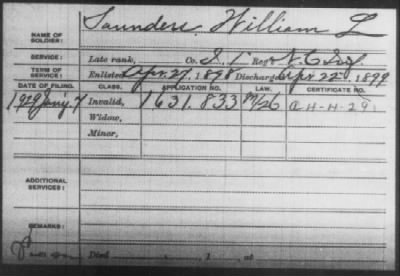 NAME OF SOLDIER: Saunders, William L
SERVICE: Late rank, Co. I, 1 Reg't N.C. Inf
TERM OF SERVICE: Enlisted Apr. 27, 1898 Discharged Apr. 22, 1899
DATE OF FILING. CLASS. APPLICATION NO. LAW. CERTIFICATE NO.
1929 7 Invalid, 1631.833
Widow,
Minor,
ADDITIONAL SERVICES:
REMARKS:
Died , 1 , at